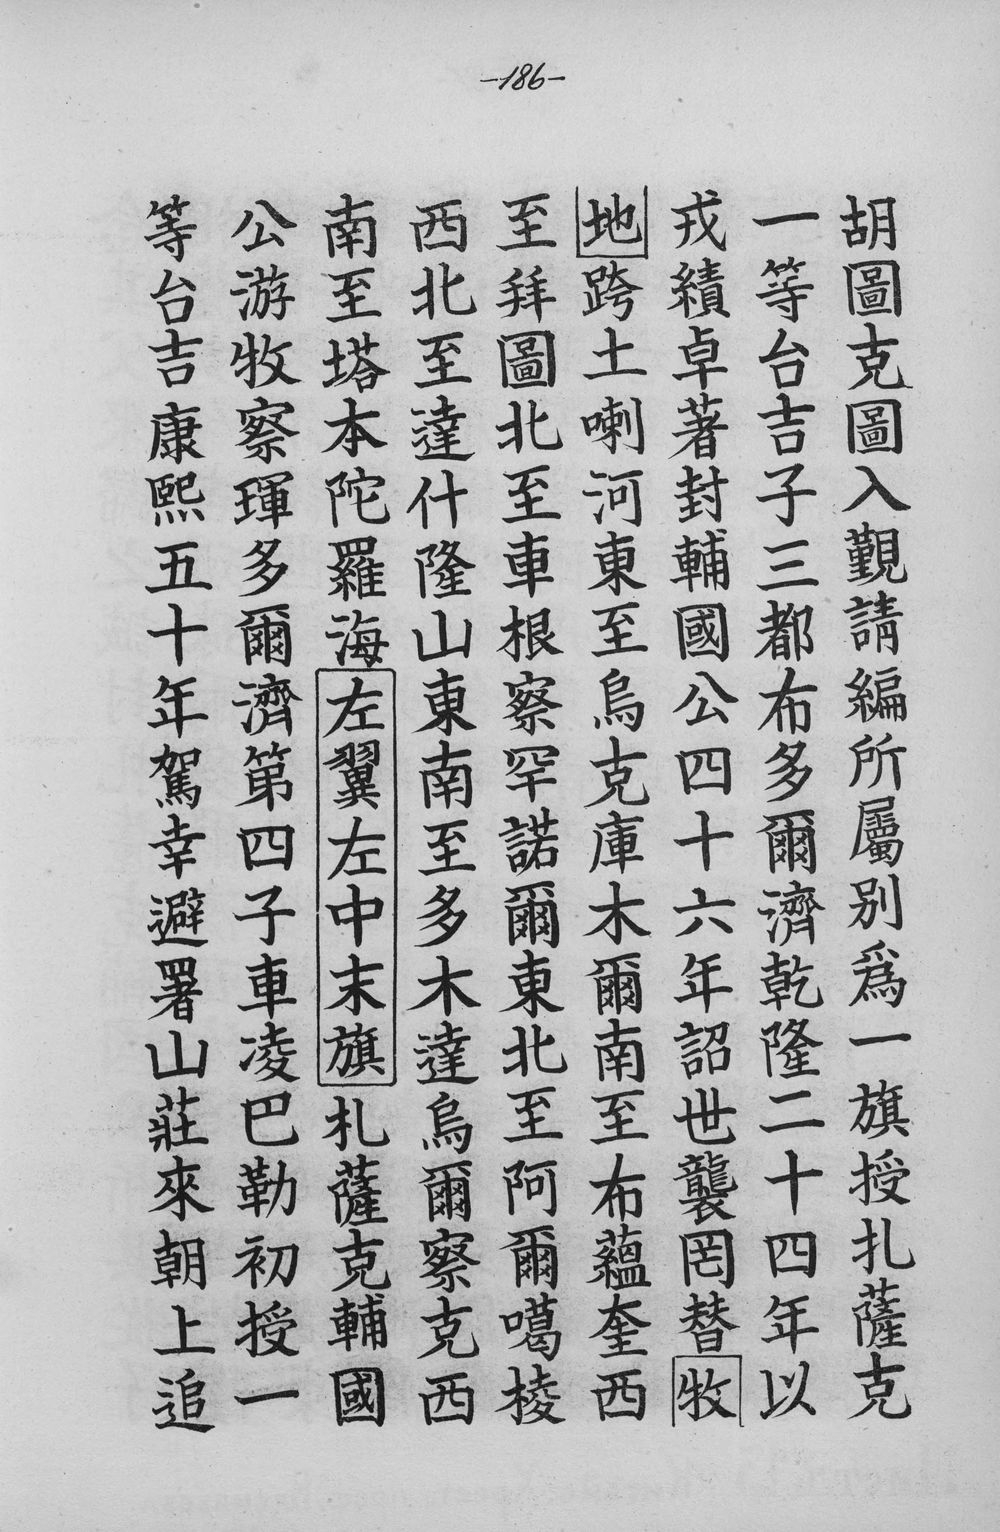 -186-
胡圖克圖入覲請編所屬別爲一旗授扎薩克
一等台吉子三都布多爾濟乾隆二十四年以
戎績卓著封輔國公四十六年詔世襲罔替牧
地跨土喇河東至烏克庫木爾南至布蘊奎西
至拜圖北至車根察罕諾爾東北至阿爾噶棱
西北至達什隆山東南至多木達烏爾察克西
南至塔本陀羅海左翼左中末旗札薩克輔國
公游牧察琿多爾濟第四子車凌巴勒初授一
等台吉康熙五十年駕幸避署山莊來朝上追